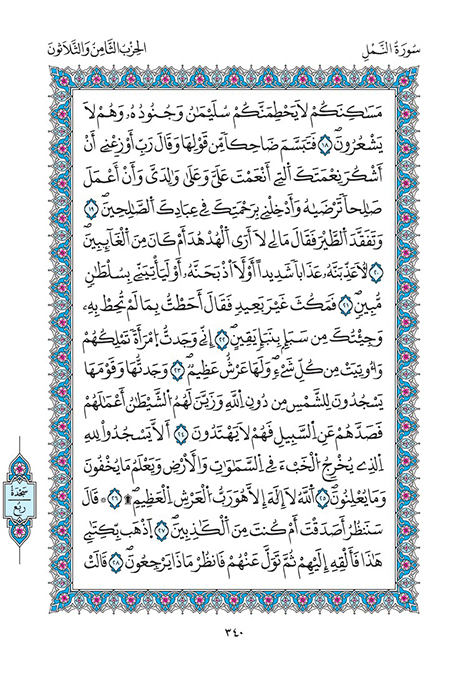 سُورَةُ النَّمْلِ
الحِزْبُ الثَّامِنُ وَالثَّلَاثُونَ
مَسَٰكِنَكُمْ لَا يَحْطِمَنَّكُمْ سُلَيْمَٰنُ وَجُنُودُهُۥ وَهُمْ لَا
يَشْعُرُونَۖ ١٨ فَتَبَسَّمَ ضَاحِكاٗ مِّن قَوْلِهَا وَقَالَ رَبِّ أَوْزِعْنِے أَنْ
أَشْكُرَ نِعْمَتَكَ اَلتِے أَنْعَمْتَ عَلَيَّ وَعَلَىٰ وَٰلِدَيَّ وَأَنْ أَعْمَلَ
صَٰلِحاٗ تَرْضَىٰهُ وَأَدْخِلْنِے بِرَحْمَتِكَ فِے عِبَادِكَ اَلصَّٰلِحِينَۖ ١٩
وَتَفَقَّدَ اَلطَّيْرَ فَقَالَ مَا لِے لَا أَرَى اَلْهُدْهُدَ أَمْ كَانَ مِنَ اَلْغَآئِبِينَۖ
٢٠ لَأُعَذِّبَنَّهُۥ عَذَاباٗ شَدِيداً أَوْ لَأَاْذْبَحَنَّهُۥ أَوْ لَيَأْتِيَنِّے بِسُلْطَٰنٖ
مُّبِينٖۖ ٢١ فَمَكُثَ غَيْرَ بَعِيدٖ فَقَالَ أَحَطتُّ بِمَا لَمْ تُحِطْ بِهِۦ
وَجِئْتُكَ مِن سَبَإِۭ بِنَبَإٖ يَقِينٍۖ ٢٢ اِنِّے وَجَدتُّ اُمْرَأَةٗ تَمْلِكُهُمْ
وَأُوتِيَتْ مِن كُلِّ شَےْءٖۖ وَلَهَا عَرْشٌ عَظِيمٞۖ ٢٣ وَجَدتُّهَا وَقَوْمَهَا
يَسْجُدُونَ لِلشَّمْسِ مِن دُونِ اِللَّهِ وَزَيَّنَ لَهُمُ اُلشَّيْطَٰنُ أَعْمَٰلَهُمْ
فَصَدَّهُمْ عَنِ اِلسَّبِيلِ فَهُمْ لَا يَهْتَدُونَ ٢٤ أَلَّا يَسْجُدُواْ لِلهِ
اِلذِے يُخْرِجُ اُلْخَبْءَ فِے اِلسَّمَٰوَٰتِ وَالْأَرْضِ وَيَعْلَمُ مَا يُخْفُونَ
وَمَا يُعْلِنُونَۖ ٢٥ اَللَّهُ لَا إِلَٰهَ إِلَّا هُوَ رَبُّ اُلْعَرْشِ اِلْعَظِيمِۖ ۩ ٢٦ قَالَ
سَنَنظُرُ أَصَدَقْتَ أَمْ كُنتَ مِنَ اَلْكَٰذِبِينَۖ ٢٧ اَذْهَب بِّكِتَٰبِے
هَٰذَا فَأَلْقِهِ إِلَيْهِمْ ثُمَّ تَوَلَّ عَنْهُمْ فَانظُرْ مَاذَا يَرْجِعُونَۖ ٢٨ قَالَتْ
سَجْدَة
رُبُع
٣٤٠